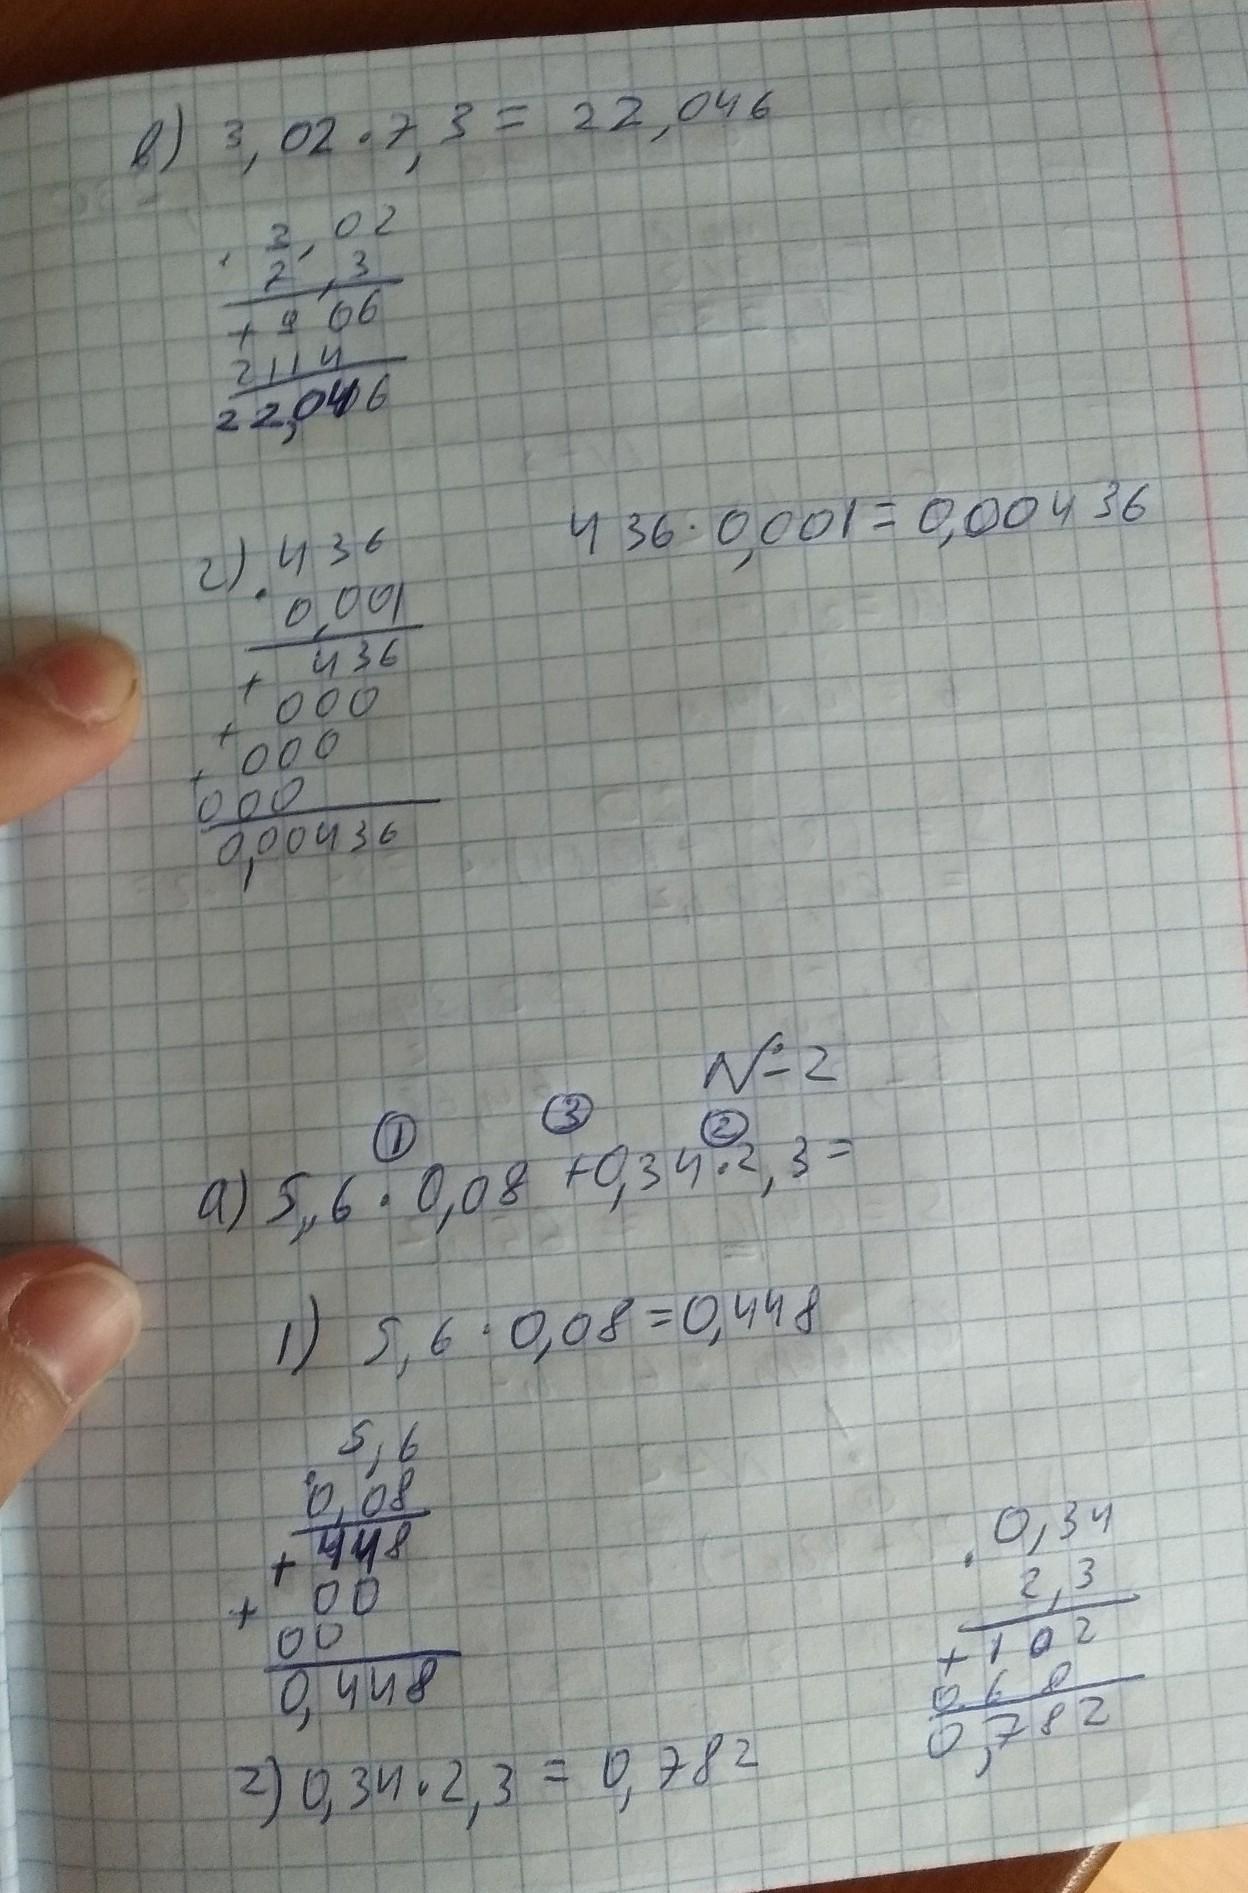 в) 3,02·7,3 = 22,046
· 3,02
7,3
+ 906
2114
22,046
г) · 436
436·0,001=0,00436
0,001
+ 436
+ 000
+ 000
000
0,00436
№2
① ③ ②
а) 5,,6·0,08 +0,34·2,3=
1) 5,6·0,08=0,448
5,6
·0,08
+ 448
+ 00
00
0,448
· 0,34
2,3
+ 102
068
0,782
2) 0,34·2,3 = 0,782